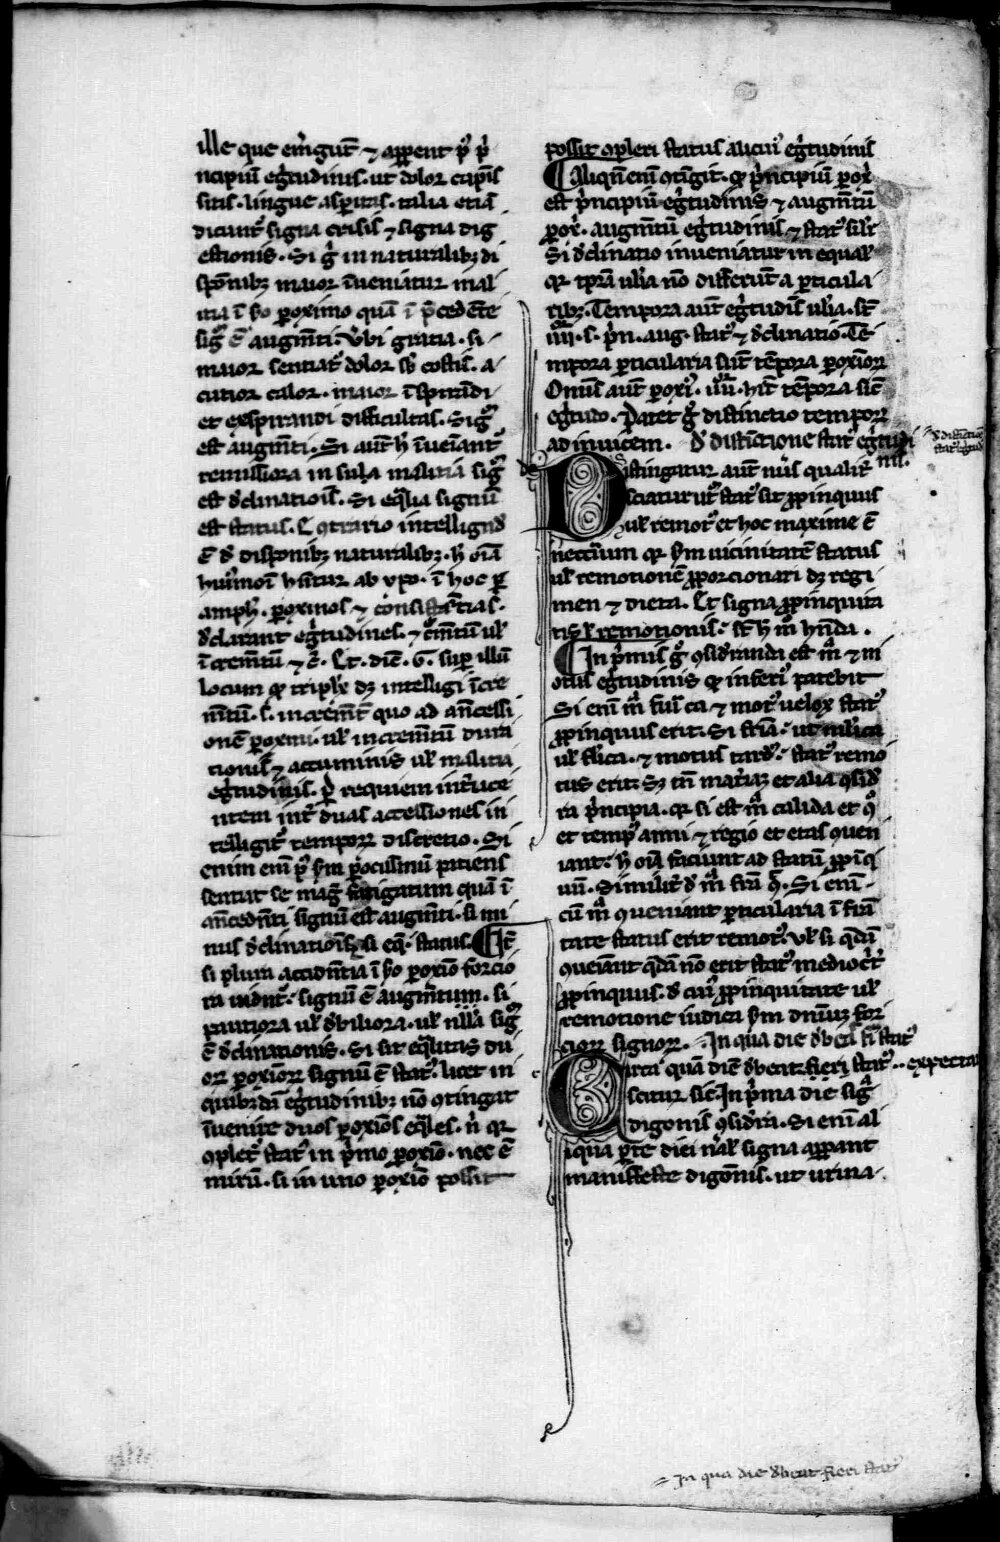 ille que em̄gūt ⁊ apparent p⁹ p̄
ncipiū eḡtudinis. ut dolor capitis
sitis. lingue asp̄itas. talia etiā
dicunt̄ signa crisis ⁊ signa dig
estionis. Si ḡ in naturalibꝫ di
spōnibꝫ maior īueniatur mali
tia ī ꝓximo quā ī p̄cedēte
sigᵐ ē augm̄ti. Vbi gratia. si
maior sentiat̄ dolor sb costis. a
cutior calor. maior ī spirādi
et exspirandi difficultas. Sigᵐ
est augm̄ti. Si aut̄ h̄ īueniant̄
remissiora in sua malitia sigᵐ
est declinationis. Si eq̄lia signū
est status. E ꝯtrario intelligēd
ē d̄ dispōnibꝫ naturalibꝫ. h̄ oīa
hn̄tur ab ypo. ī hoc
amph. ꝑoxismos ⁊ consistentias.
declarant eḡtudines. ⁊ uł
īcrem̄tū ⁊ c̄. Et. dic̄. G. sup illū
locum q̄ triplex dꝫ intelligi īcre
m̄tū. s. increm̄t quo ad accessi
onē ꝑoxismi. uł increm̄tū dura
tionis ⁊ accuminis uł malitia
eḡtudinis. requiem int̄uce
ntem int̄ duas accessiones in
telligit̄ temporꝫ discretio. Si
enim eni p⁹ sm̄ patiens
sentiat se maḡ fatigatum quā ī
an̄cedn̄ti signū est augm̄ti. si mi
nus declinationis. si eq̄. status. Et
si plura accidn̄tia ī ꝑoxismo forcio
ra uidn̄t̄. signū ē augm̄tum. si
pauciora uł debiliora. uł nłła sigᵐ
ē declinationis. Si sit eq̄litas du
oꝝ ꝑoxismoꝝ signū ē stat⁹. licet in
quibꝫdā eḡtudinibꝫ nō ꝯtingat
īuenire duos ꝑoxismos eq̄les. n̄ qꝛ
ꝯplet̄ stat⁹ in p̄mo ꝑoxismo. nec ē
mirū. si in uno ꝑoxismo possit
possit ꝯpleri status alicui⁹ eḡtudinis
Aliqn̄ enī ꝯtigit. q̄ p̄ncipiū ꝑox̄
est p̄ncipiū eḡtudinis ⁊ augm̄tū
ꝑox̄. augm̄tū eḡtudinis ⁊ stat⁹ siłr
Si declinatio inueniatur in equał
qꝛ tp̄ra ułia nō differūt a ꝑticula
ribꝫ. Tempora aut̄ eḡtudis ułia. st̄
iiij. s. p̄n. aug. stat⁹ ⁊ declinatio. Te
mpora ꝑticularia sunt tēpora ꝑoxismoꝝ
Omnis aut̄ ꝑoxi⁹. hn̄t tēpora sic̄
eḡtudo. Patet ḡ distinctio temporꝫ
adinuicem. D̄ distīctione stat⁹ eḡtudi
nis.
Distingatur aut̄ nūc qualit̄
sciatur ut̄ stat⁹ sit ꝓpinquus
uł remot⁹ et hoc maxime ē
necc̄ium qꝛ sm̄ uicinitatē status
uł remotionē ꝓporcionari dꝫ regi
men ⁊ dieta. Et signa ꝓpinquita
tis uł remotionis. st̄ h̄ m̄ hn̄da.
In p̄mis ḡ ꝯsid̄randa est m̄ ⁊ m
otus eḡtudinis q̄ inferi⁹ patebit
Si eni m̄ fu̅it ca ⁊ mot⁹ uelox stat⁹
ꝓpinquus erit. Si fr̄ia. ut mēl'ica
uł fł'ica. ⁊ motus tard⁹. stat⁹ remo
tus erit. Sꝫ tn̄ mat̄iaꝫ et alia ꝯsid̄
ra p̄ncipia. qꝛ si est m̄ calida et
et temp⁹ anni ⁊ regio et etas ꝯueni
iant. h̄ oīa faciunt ad statū ꝓpīq
uū. Similit̄ d̄ m̄ fr̄a Si enī
cū m̄ ꝯueniant ꝑticularia ī fr̄ia
tate status erit remot⁹. Vł si q̄dā
ꝯueniant q̄dā nō erit stat⁹ mediocr̄t
ꝓpinquus. d̄ cui⁹ ꝓpinquitate uł
remotione iudica sm̄ dn̄iuꝫ for
cioꝝ signoꝝ. In qua die debeat fi̅ stat⁹
Circa quā diē debeat fieri stat⁹ expecta
scitur sic. In p̄ma die sigᵃ
digōnis ꝯsid̄ra. Si enī ali
qua ꝑte diei n̄ał signa appant
manifeste digōnis. ut urina.
d̄ distīctiōe
stat⁹ egtud
In qua die debeat fieri stat⁹